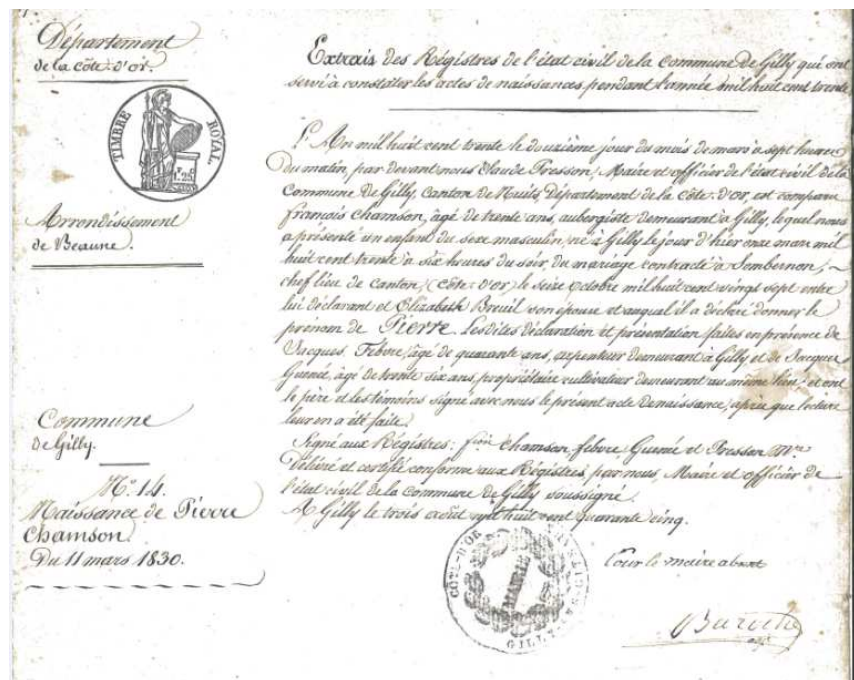 Département
de la Côte-d'or.
TIMBRE ROYAL.
1F. 25c
Arrondissement
de Beaune.
Commune
de Gilly.
N°. 14.
Naissance de Pierre
Chamson.
Du 11 mars 1830.
Extrais des Régistres de l'état civil de la Commune de Gilly qui ont
servi à constater les actes de naissances pendant l'année mil huit cent trente
L'An mil huit cent trente le douzième jour du mois de mars à sept heures
du matin, par devant nous Claude Presson, Maire et officier de l'état civil de la
Commune de Gilly, Canton de Nuits, Département de la Côte-d'or, est comparu
françois Chamson, âgé de trente ans, aubergiste demeurant à Gilly, lequel nous
a présenté un enfant du sexe masculin, né à Gilly le jour d'hier onze mars mil
huit cent trente à six heures du soir, du mariage contracté à Sombernon,
chef lieu de Canton, (Côte-d'or) le seize Octobre mil huit cent vingt sept entre
lui déclarant et Elizabeth Breuil son épouse et auquel il a déclaré donner le
prénom de Pierre. Lesdites déclaration et présentation faites en présence de
Jacques Febvre, âgé de quarante ans, arpenteur demeurant à Gilly et de Jacques
Gumé, âgé de trente six ans, propriétaire cultivateur demeurant au même lieu; et ont
le père et les témoins signé avec nous le présent acte de naissance, après que lecture
leur en a été faite.
Signé aux Régistres: fois Chamson, febvre, Gumé et Presson Mre
Délivré et certifié conforme aux Régistres, par nous, Maire et officier de
l'état civil de la Commune de Gilly soussigné.
A Gilly le trois août mil huit cent quarante cinq.
Pour le maire absent
CÔTE-D'OR
MAIRIE
GILLY